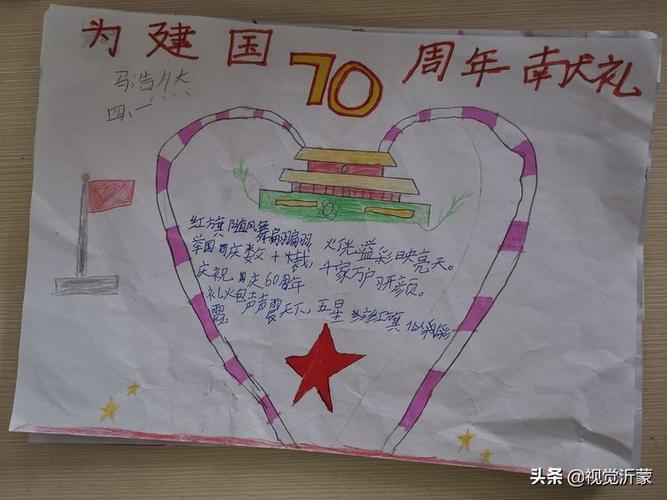 为建国70周年献礼
马浩然
四、一
红旗随风舞翩翩，火优溢彩映亮天。
举国同庆数十载，千家万户开颜。
庆祝国庆60周年
礼火包声声震天下，五星红旗
霞
头条 @视觉沂蒙